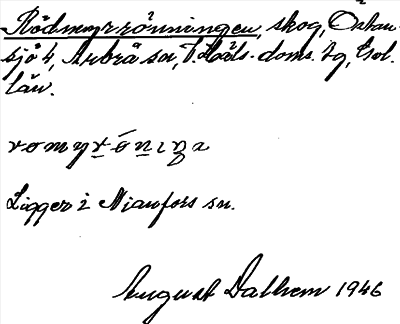 Rödmyrrönningen, skog, Östan-
sjö 4, Arbrå sn, V. Häls. doms. tg, Gvl.
län.
romyrö́niŋa
Ligger i Nianfors sn.
August Dalhem 1946